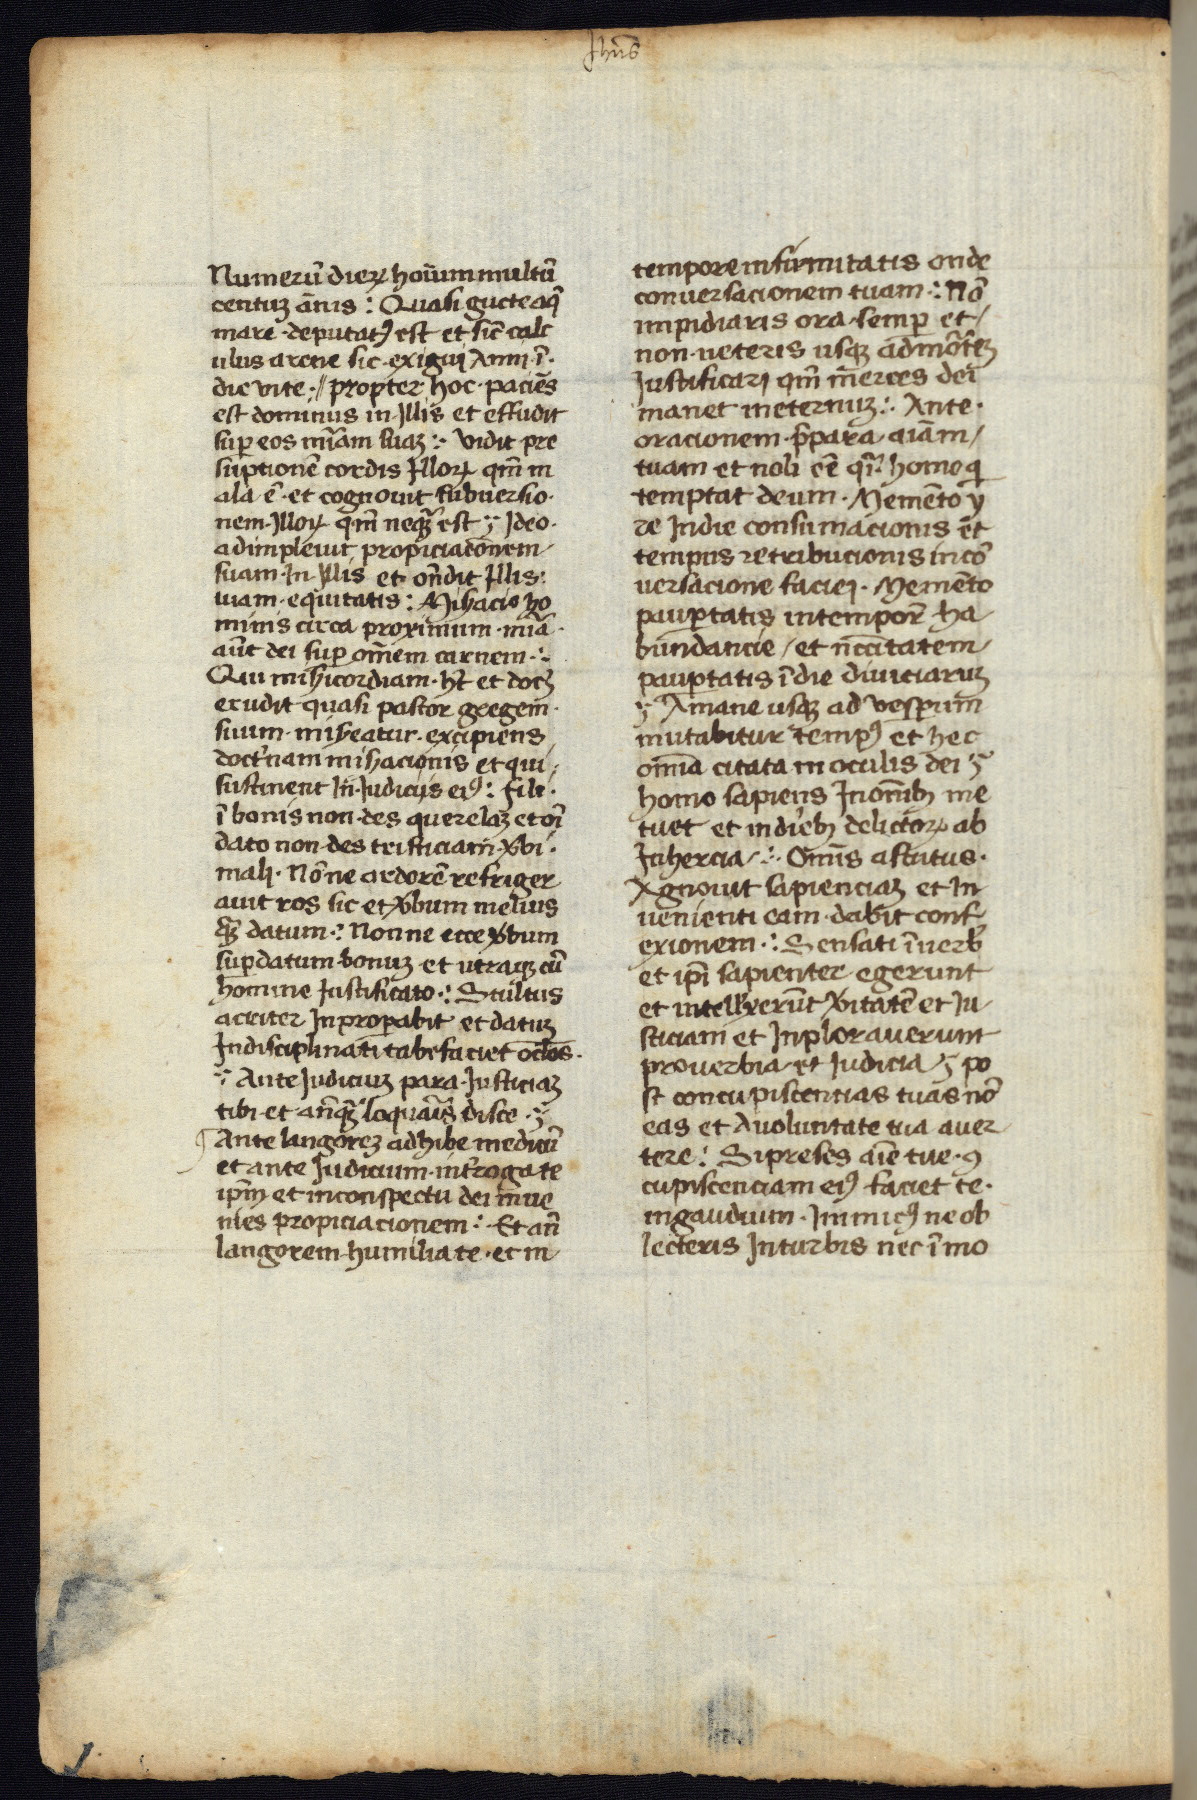 Jhūs
Numerū dierꝝ hoīum multū
centuꝫ ānis : Quasi gucte aq̄
mare · deputatꝰ est et sic̄ calc
ulus arene sic · exigui Anni · ī ·
die vite · // propter hoc · paciēs
est dominus in · Jllis et effudit
suꝑ eos mīam suaꝫ : · Vidit pre
suptionē cordis Jlloꝝ qm̄ m
ala ē · et cognouit subuersio ·
nem · Jlloꝝ qm̄ neqꝫ est · Jdeo ·
adimpleuit propiciacōnem
suam · Jn · Jllis et on̄dit Jllis :
uiam · equitatis : Misacio ho
minis circa proximum · mīa ·
aūt dei suꝑ om̄em carnem · : ·
Qui misicordiam · ht̄ et docꝫ
erudit quasi pastor gregem ·
suum · miseatur · excipiens
doct'nam misacionis et qui ·
festinent Jn̄ · Judicijs eiꝰ : fili ·
ī bonis non · des querelaꝫ et oī
dato non · des tristiciam · v̄bi ·
mali · Nōne ardorē refriger
auit ros sic et v̄bum melius
qꝫ datum · : Nonne ecce v̄bum
suꝑ datum · bonuꝫ et vtraqꝫ cū
homine Justificato · : Stultus
acriter Jnproꝑabit et datuꝫ
Jndisciplinati tabefaciet oclōs ·
Ante Judiciuꝫ para · Justiciaꝫ
tibi · et an̄qꝫ loquaīs disce ·
Ante langoreꝫ adhibe medicū
et ante Judicium · int̄roga te
ip̄m et in conspectu dei īnue
nies propiciacionem : · Et an̄
langorem · humilia te · et in
tempore infirmitatis onde
conuersacionem tuam · : Nō
impidiaris ora · semꝑ et /
non · ueteris usqꝫ ad mōteꝫ
Justificari qm̄ m̄erces dei
manet in eternuꝫ : · Ante ·
oracionem · p̄para · aīam /
tuam et noli eē qī · homo qi
temptat deum · Memēto y
re Jn die consumacionis et
tempus retribucionis in cō
uersacione faciei · Memēto
pauꝑtatis in temporē ha
bundancie / et nc̄citatem
pauꝑtatis ī die diuiciaruꝫ
A mane usqꝫ ad vesꝑum
mutabitur tempꝰ et hec
om̄ia citata in oculis dei
homo sapiens Jn om̄ibꝫ me
tuet et in diēbꝫ delictoꝝ ab
Jnhercia / · : · Om̄is astutus ·
Agnouit sapienciaꝫ et Jn
uenienti eam · dabit conf
exionem · : Sensati ī uerb̄
et ip̄i sapienter egerunt
et intellexerūt v̄itatē et Ju
sticiam et Jnplorauerunt
prouerbia · et Judicia · po
st concupiscentias tuas nō
eas et A uoluntate tua auer
tere : Si preses aīe tue · ꝯ
cupiscenciam eiꝰ faciet te ·
in gaudium · Jnimicꝰ ne ob
lecteris Jn turbis nec ī mo